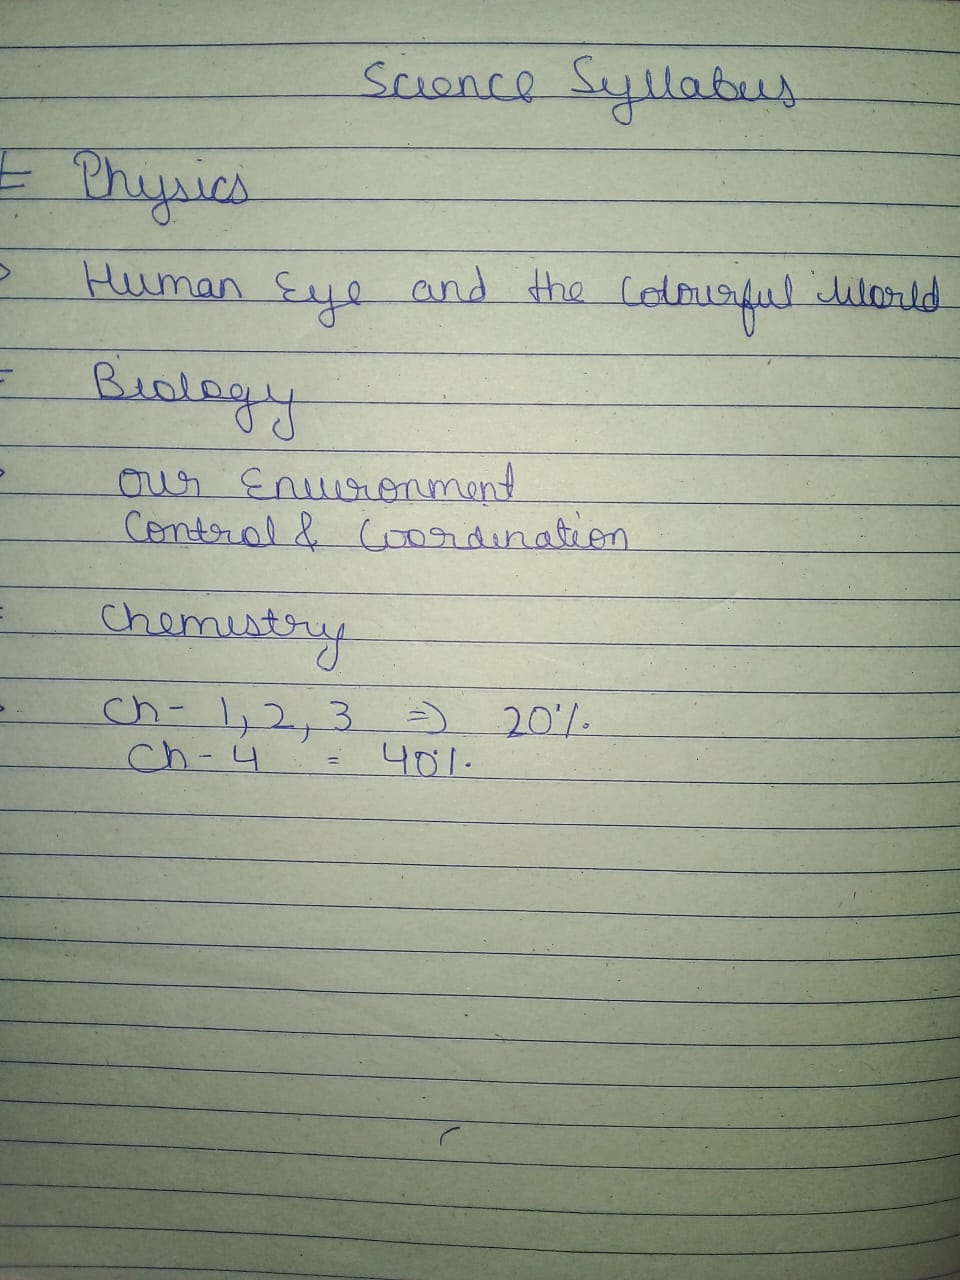 Science Syllabus
Physics
Human Eye and the Colourful World
Biology
Our Environment
Control & Coordination
Chemistry
Ch- 1, 2, 3 => 20%.
Ch - 4 = 40%.